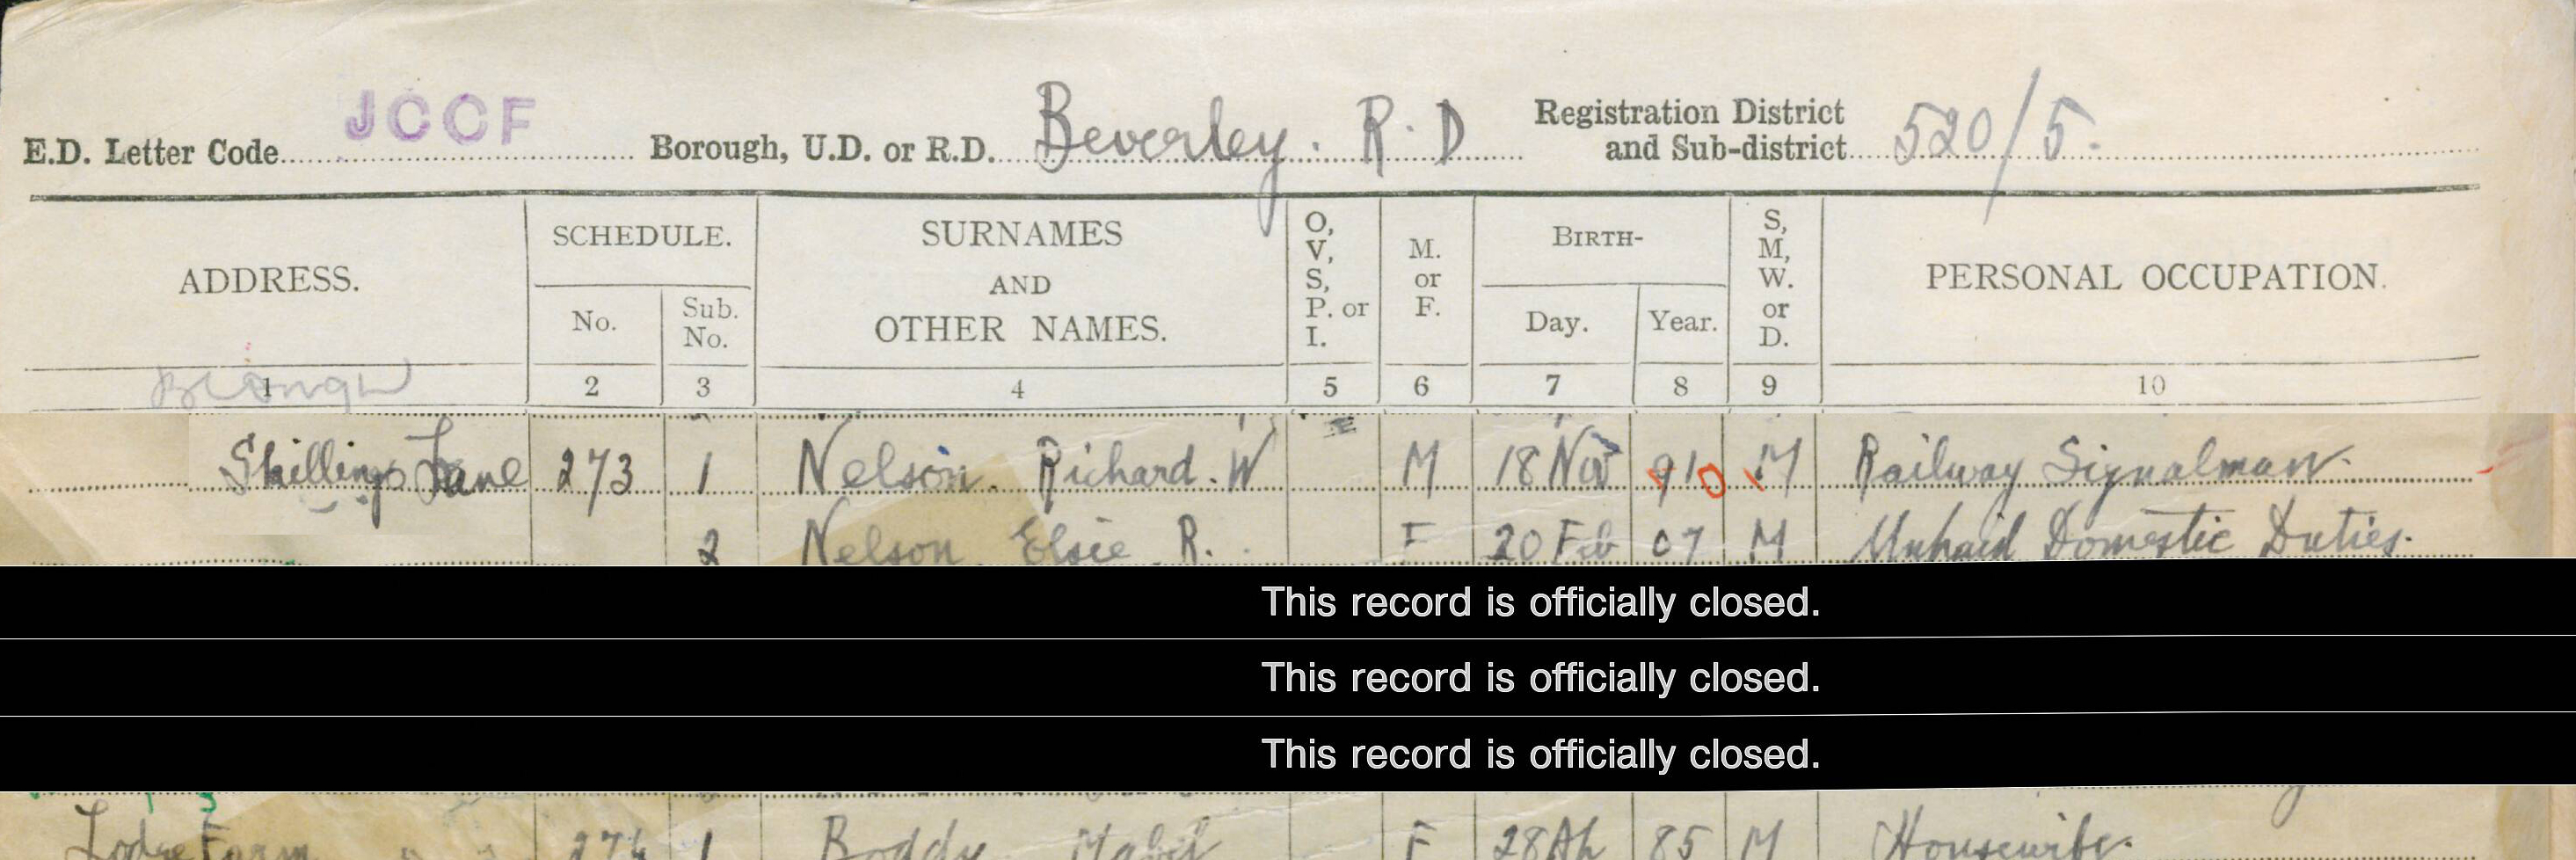 E.D. Letter Code JCCF Borough, U.D. or R.D. Beverley. R.D Registration District and Sub-district 520/5.
ADDRESS. SCHEDULE. SURNAMES AND OTHER NAMES. O, V, S, P. or I. M. or F. BIRTH- S, M, W. or D. PERSONAL OCCUPATION.
No. Sub. No. Day. Year.
1 2 3 4 5 6 7 8 9 10
Skillings Lane 273 1 Nelson. Richard. W M 18 Nov M Railway Signalman.
2 Nelson. Elsie. R. F 20 Feb 07 M Unpaid Domestic Duties.
This record is officially closed.
This record is officially closed.
This record is officially closed.
Lodge Farm 274 1 Boddy Mabel F 28 Ap 85 M Housewife.